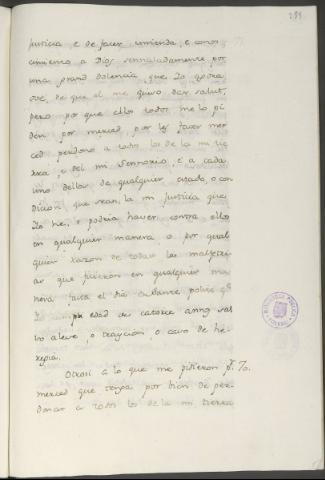 291
justicia e de facer emienda, e conos
cimiento a Dios sennaladamente por
una grand dolencia, que Yo agora
ove, de que el me quiso dar salut,
pero por que ellos todos me lo pi
den por merced, por les facer mer
ced perdono a todos los de la mi tie
rra, e del mi Sennorio, e a cada
uno dellos de qualquier estado, o con
dicion que sean, la mi justicia que
Yo he, e podria haver contra ellos
en qualquier manera, o por qual
quier razon de todas las malfetrí
as que ficieron en qualquier ma
nera fasta el dia
edad de catorce annos sal
vo aleve, o traycion, o cavo de he
regia.
Otrosi a lo que me pidieron p.r
merced que tenga por bien de per
donar a todos los de la mi tierra
BIBLIOTECA PUBLICA
TOLEDO